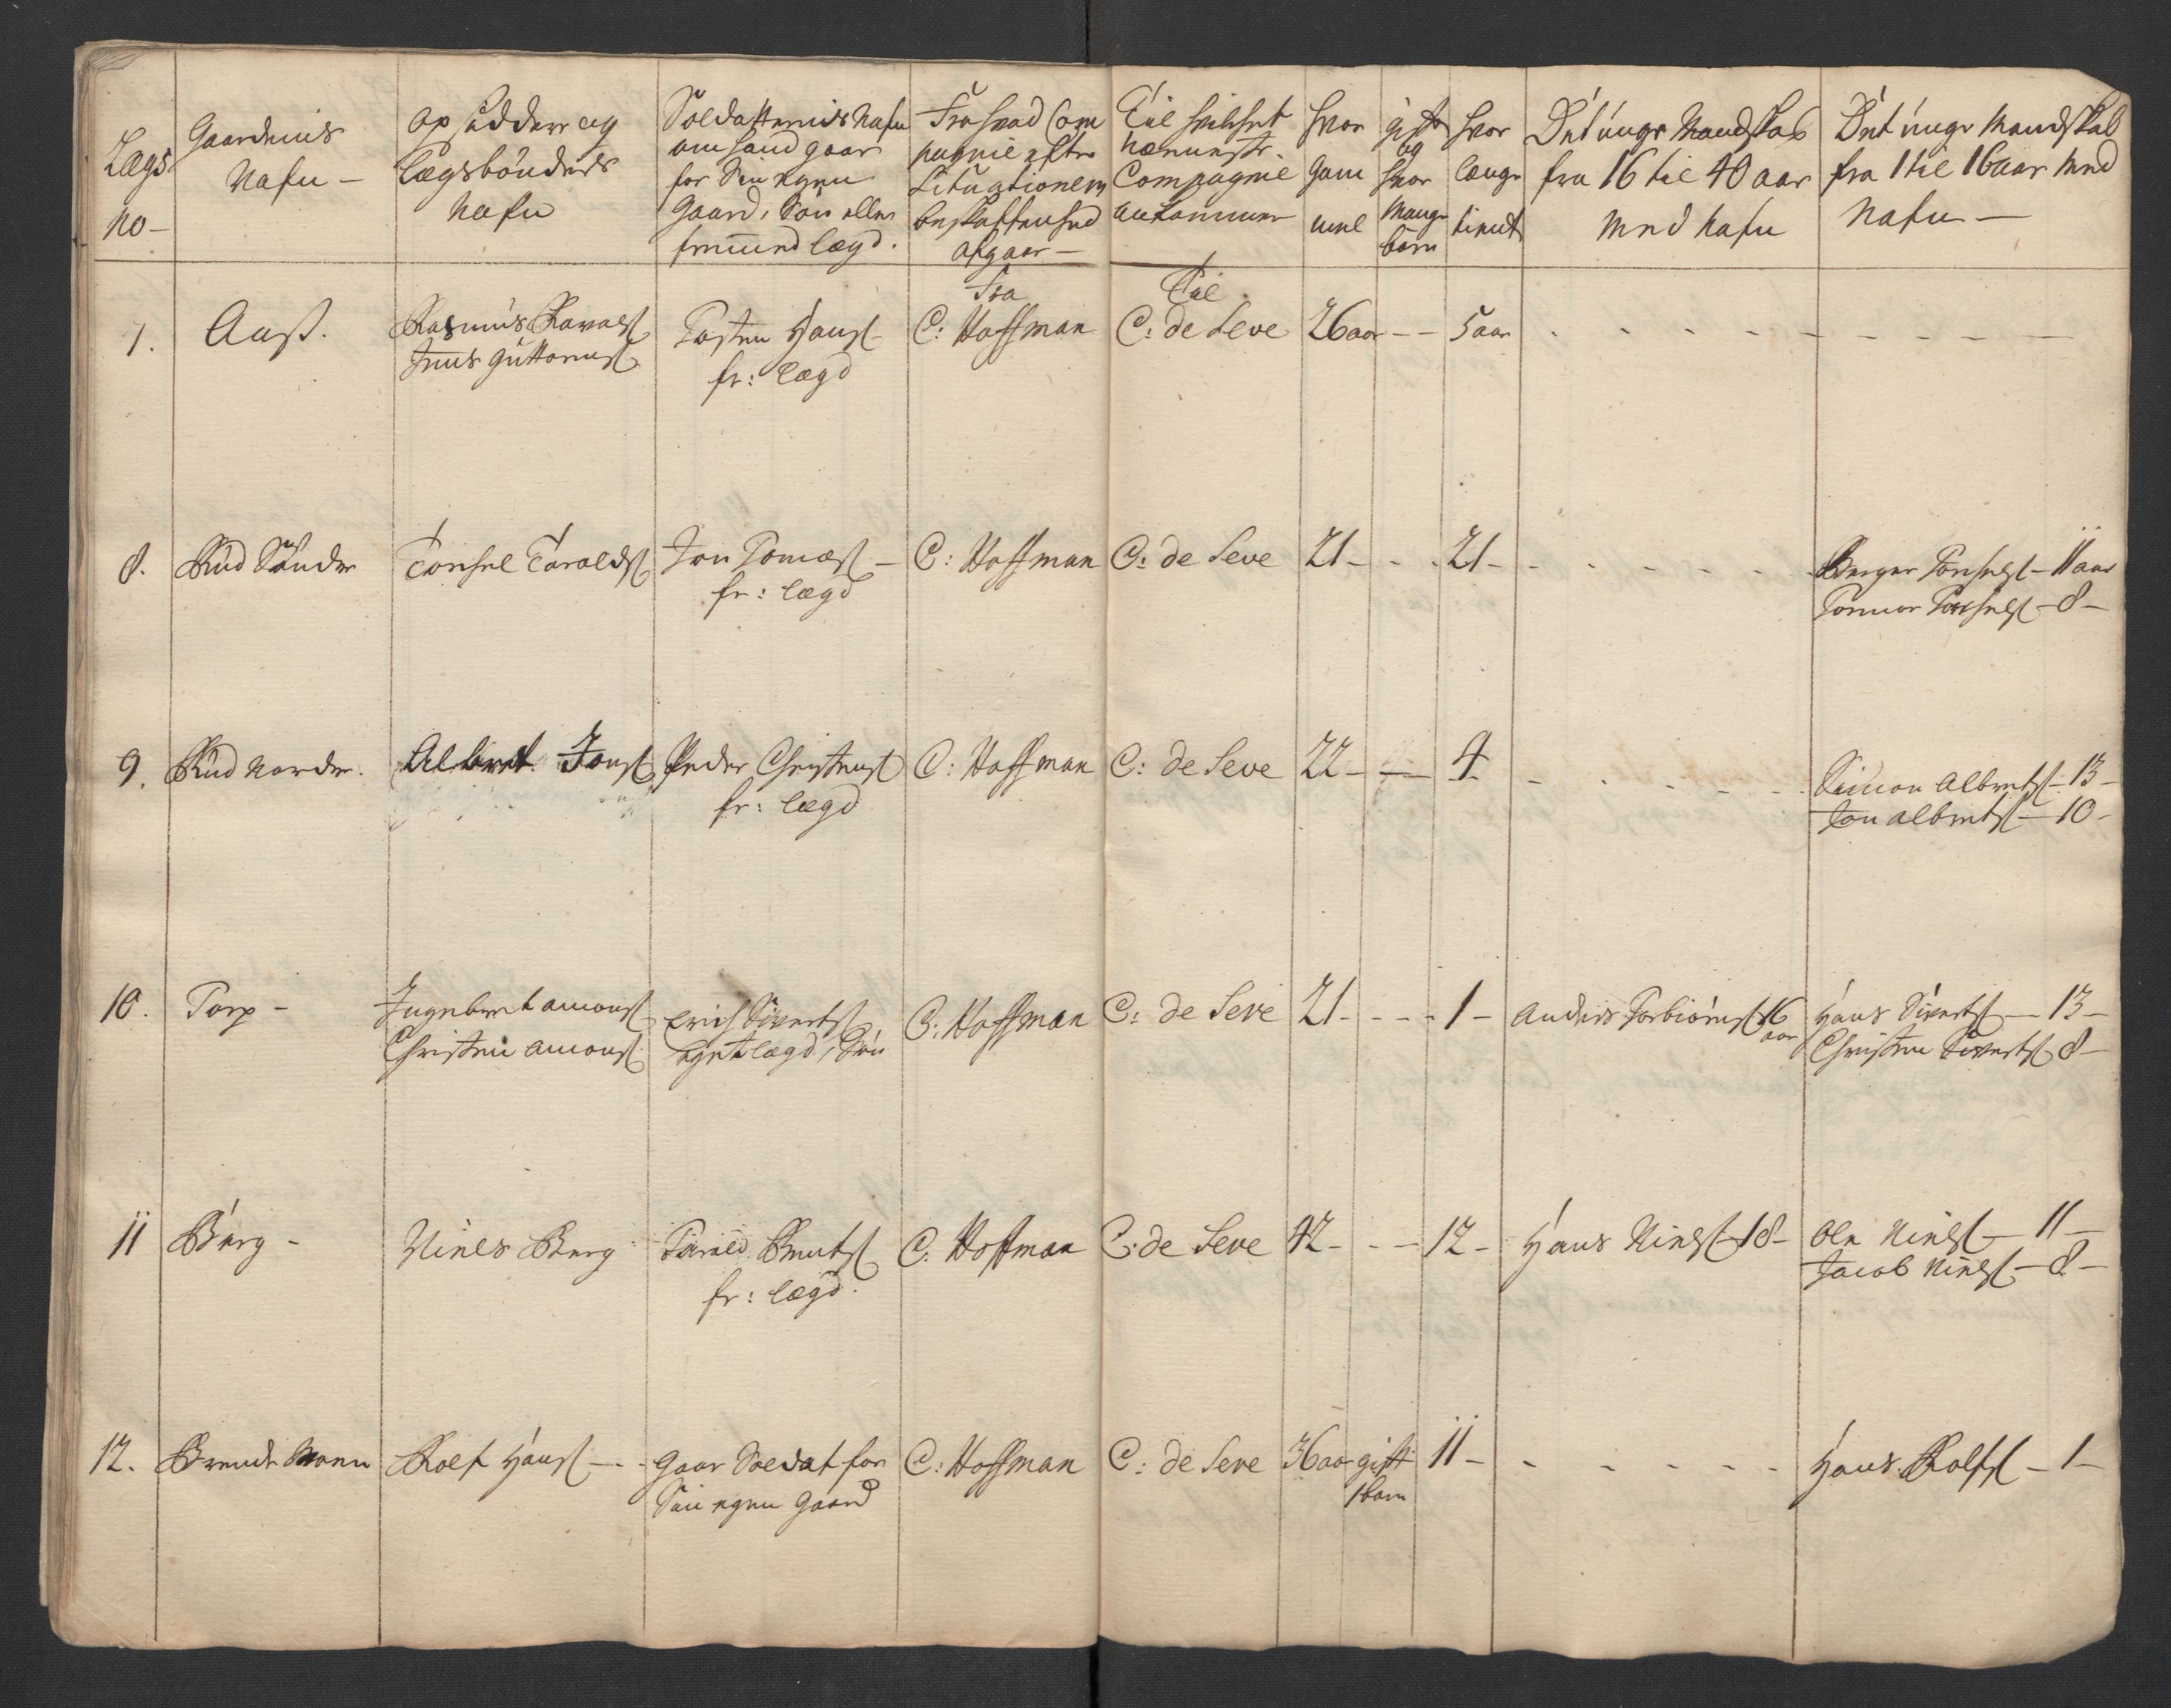 Lægs
No –
Gaardenis
Nafn –
Opsiddere og
Lægsbønders
Nafn
Soldatternis Nafn
om hand gaar
for Sin egen
Gaard, Søn eller
fremmed lægd.
Fra hvad Com
pagnie efter
Situationens
beskaffenhed
afgaar –
Til hvilket
nærmeste
Compagnie
ankommer
hvor
gam
mel
gift
og
hvor
mange
børn
hvor
længe
tient
Det unge Mandskab
fra 16 til 40 aar
med Nafn
Det unge Mandskab
fra 1 til 16 aar med
Nafn –
7. Aaß.
Rasmus
Jens Guttormß
Tosten Hanß
fr: lægd
Fra
C: Hoffman
Til
C: de Seve 26 aar – – 5 aar
8. Rud Sønder Torchel Taroldß Jon Tomæß –
fr: lægd
C: Hoffman C: de Seve 21 – 21 –
Berger Torchelß – 11 aar
Tormor Torchelß – 8 –
9. Rud Norder. Albret Jonß Peder Christenß
fr: lægd
C: Hoffman C: de Seve 22 – 4
Simon Albretß – 13 –
Jon Albretß – 10 –
10. Torp –
Ingebret Amonß
Christen Amonß
Erich Sivertß
eget lægd, Søn
C: Hoffman C: de Seve 21 – 1 –
Anders Torbiörnß 16
aar
Hans Sivertß – 13 –
Christen Sivertß 8 –
11 Berg – Niels Berg Tarald Knutß
fr: lægd.
C. Hoffman C: de Seve 42 – 12 – Hans Nielß 18 –
Ole Nielß – 11 –
Jacob Nielß – 8 –
12. Brende Moen Rolf Hanß – gaar Soldat for
Sin egen Gaard
C: Hoffman C: de Seve 36 aar gift
1 barn
11 – Hans Rolfß – 1 –